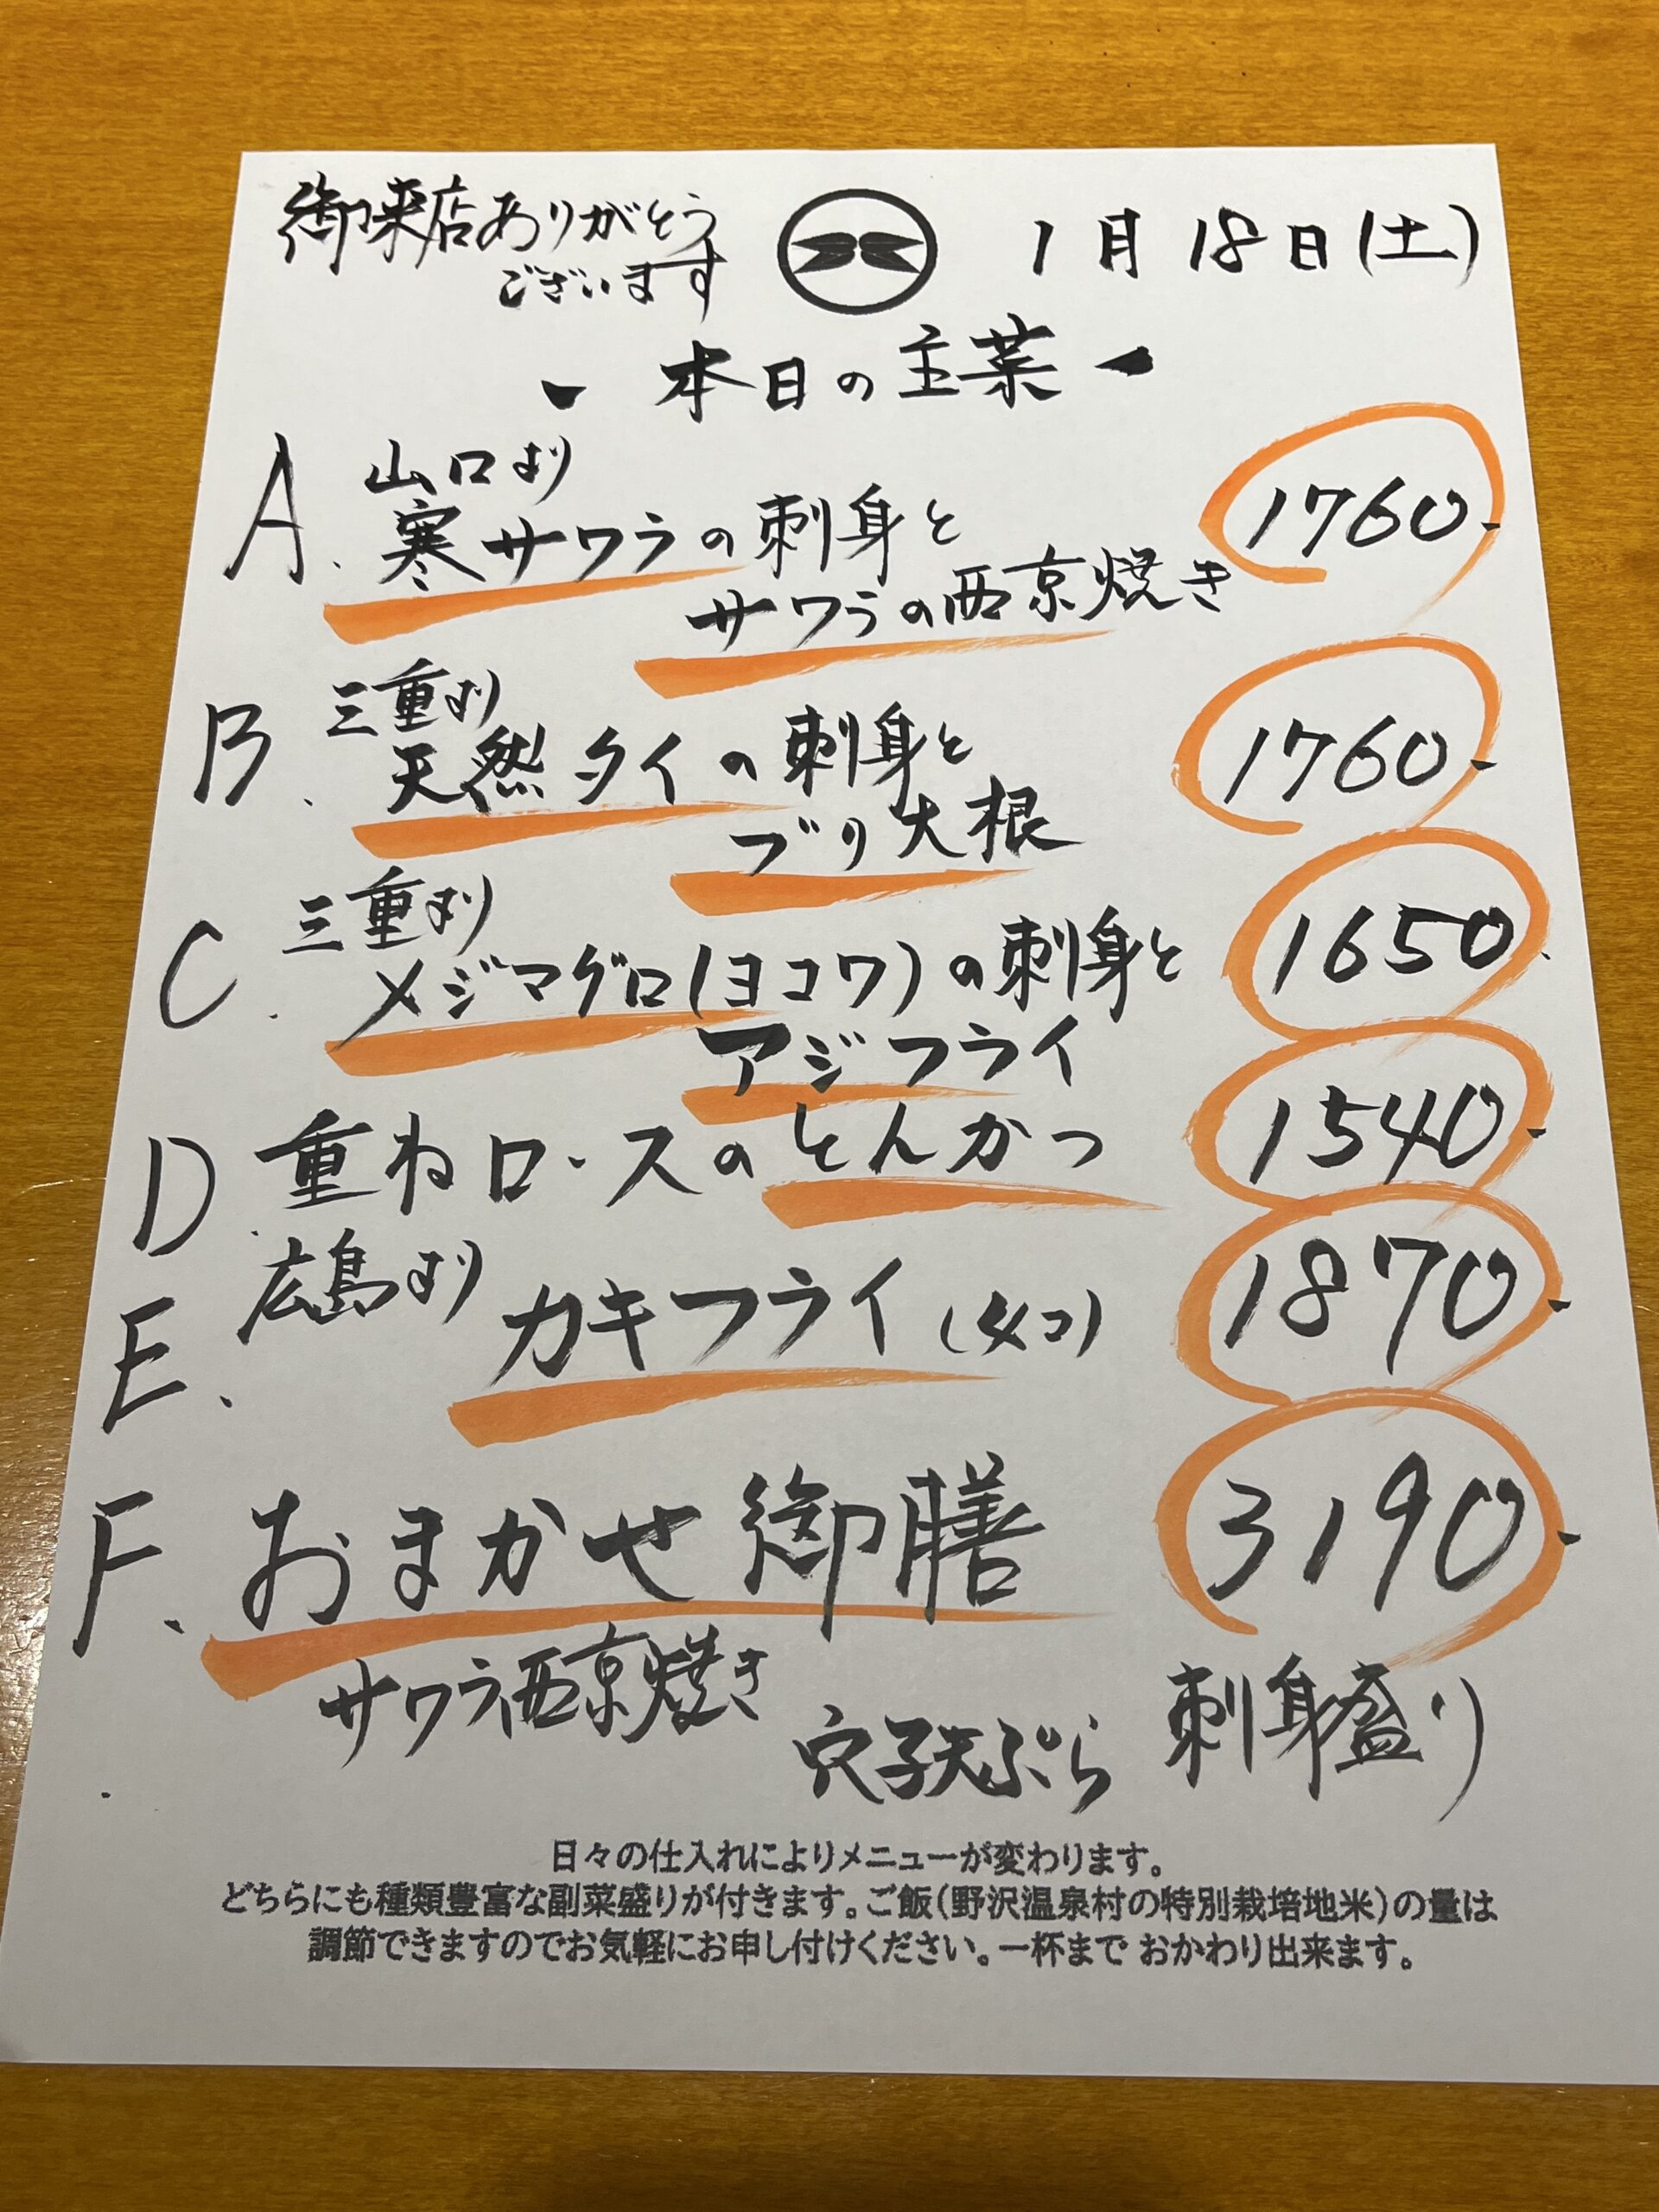 御来店ありがとう
ございます
1月18日(土)
本日の主菜
A. 山口より
寒サワラの刺身と
サワラの西京焼き
1760-
B. 三重より
天然タイの刺身と
ブリ大根
1760-
C. 三重より
メジマグロ(ヨコワ)の刺身と
アジフライ
1650-
D. 重ねロースのとんかつ
1540-
E. 広島より
カキフライ(4コ)
1870-
F. おまかせ御膳
3190-
サワラ西京焼き
穴子天ぷら
刺身盛り
日々の仕入れによりメニューが変わります。
どちらにも種類豊富な副菜盛りが付きます。ご飯(野沢温泉村の特別栽培地米)の量は
調節できますのでお気軽にお申し付けください。一杯まで おかわり出来ます。